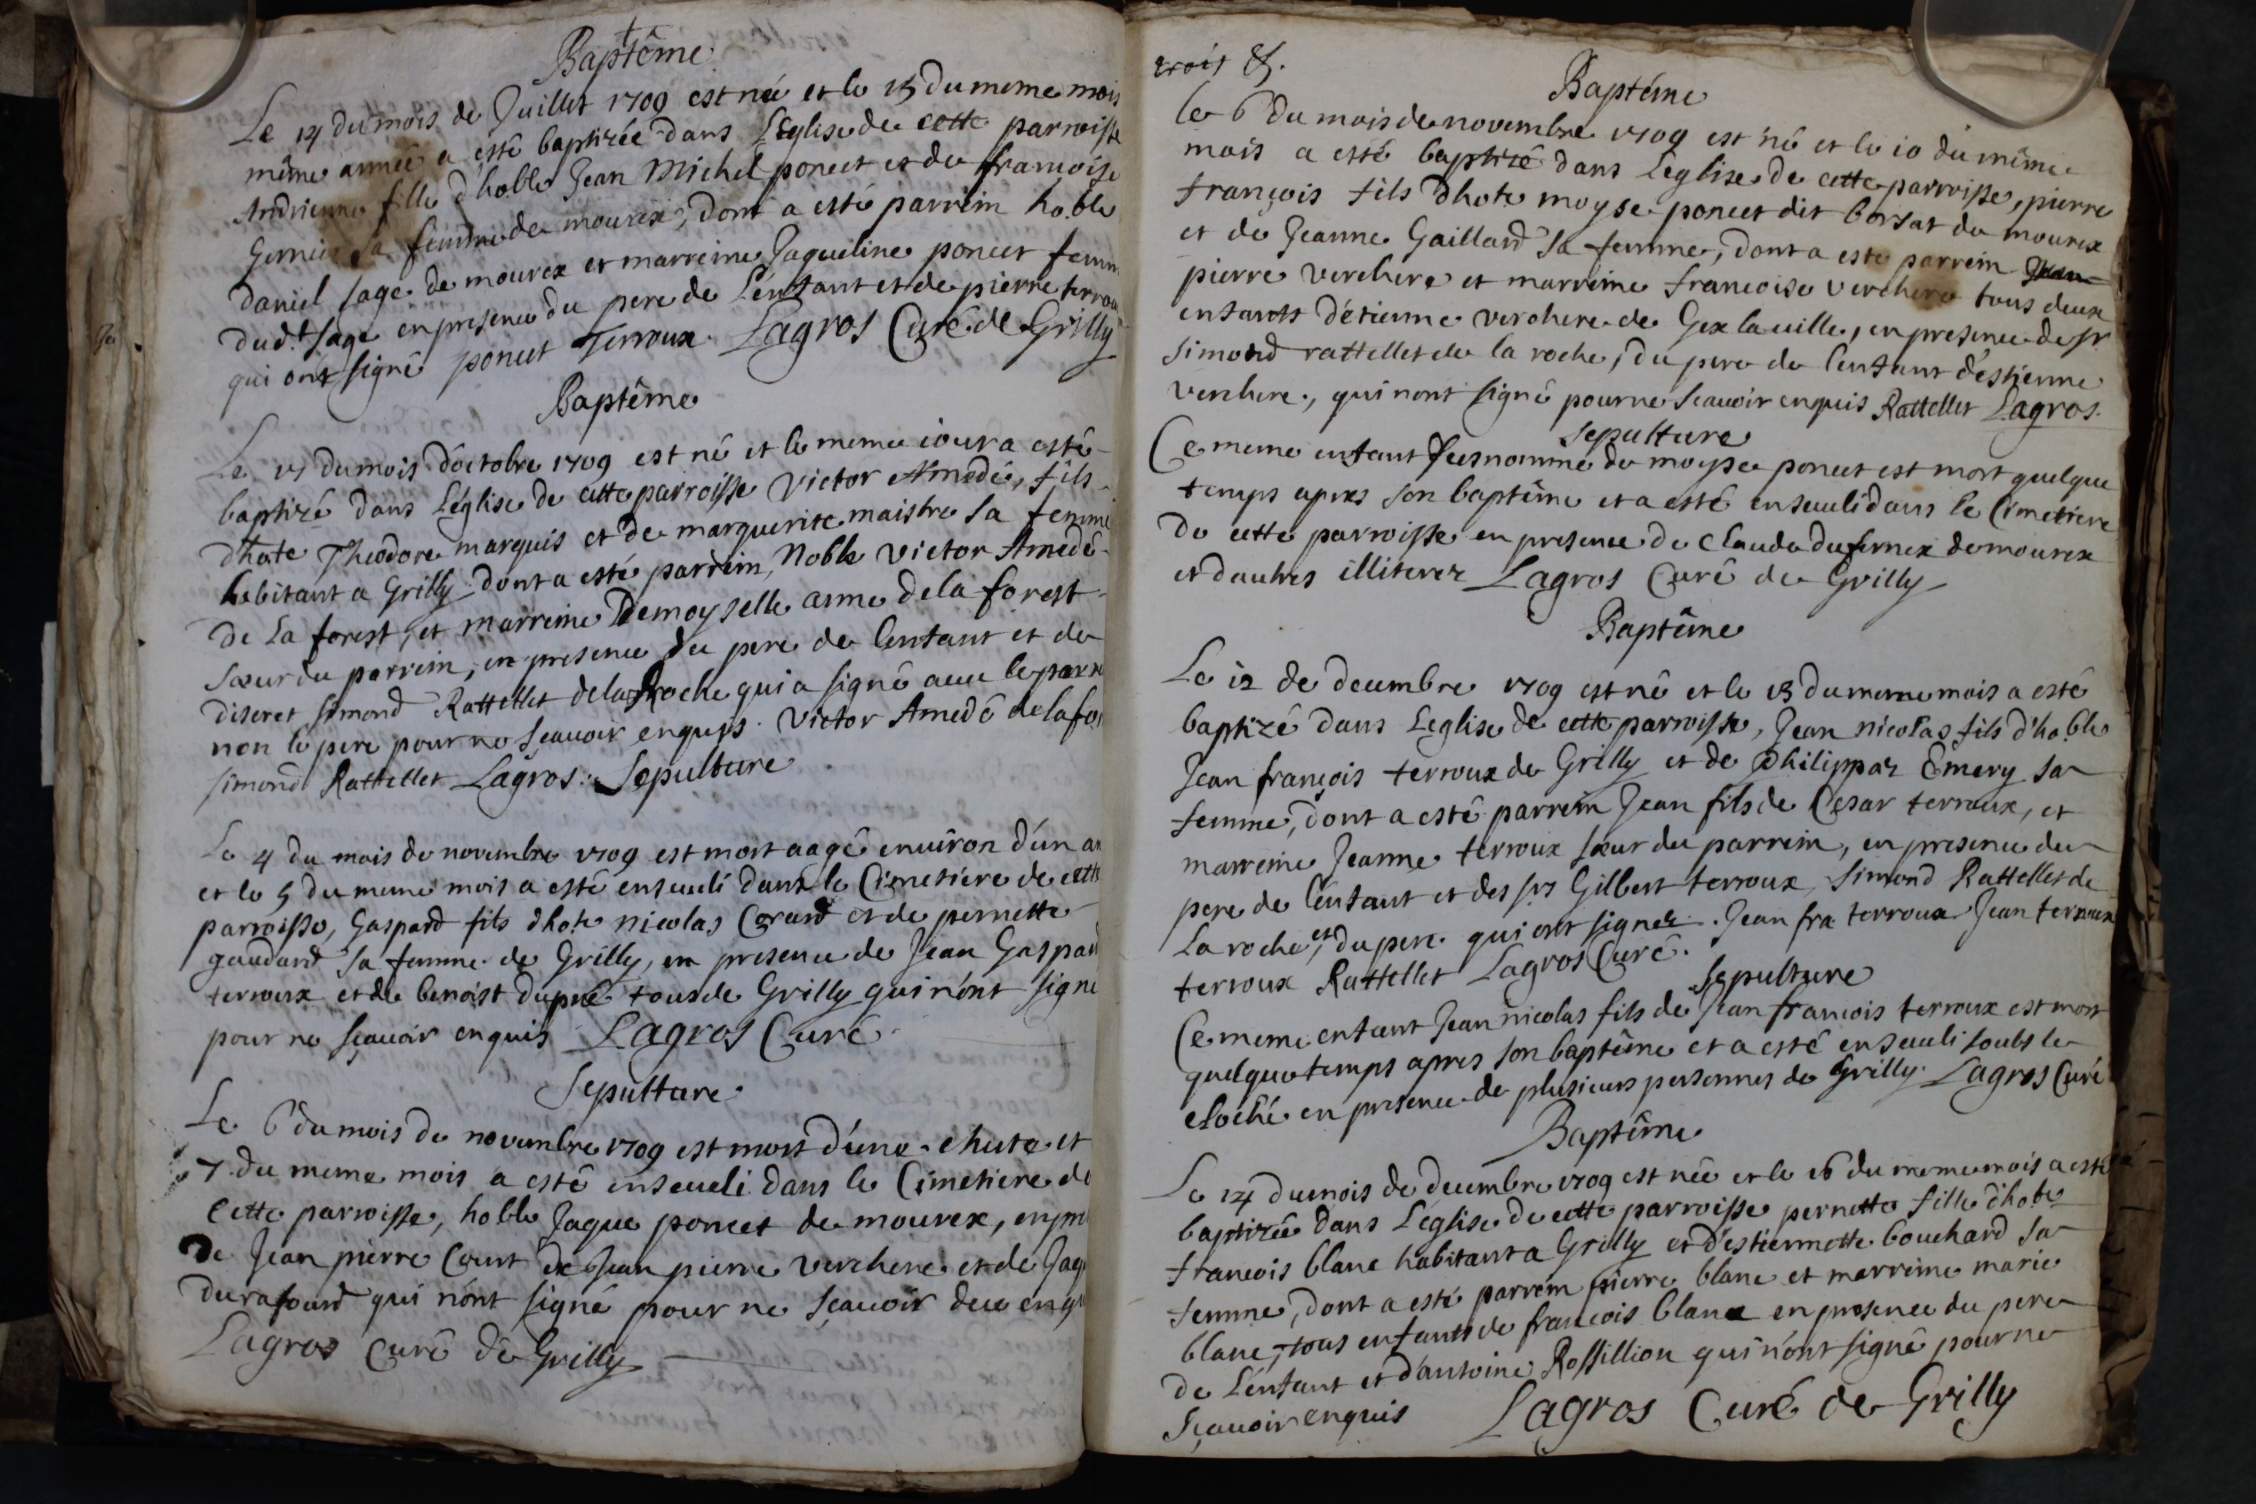 Baptême
Le 14 du mois de Juillet 1709 est née et le 15 du meme mois
même année a esté baptizée dans L'Eglise de cette parroisse
Andrienne fille d'hoble Jean Michel poncet et de françoise
sa femme de mourex, dont a esté parrein hoble
daniel sage de mourex et marreine Jaqueline poncet femm
dud.t sage en presence du pere de L'enfant et de pierre terrou
qui ont signé poncet Terroux. Lagros Curé de Grilly
Baptême
Le 17 du mois d'octobre 1709 est né et le meme iour a esté
baptizé dans L'église de cette parroisse Victor Amedée, fils
d'hote Theodore marquis et de marguerite maistre sa femme
habitant a Grilly dont a esté parrein, Noble Victor Amedé
de La forest, et marreine Demoyselle anne de la forest
sœur du parrein, en presence du pere de L'enfant et de
discret simond Rattellet de la Roche qui a signé avec le parre
non le pere pour ne sçauoir enquis. Victor Amedé de la for
simond Rattellet Lagros. Sepulture
Le 4 du mois de novembre 1709 est mort aagé enuiron d'un an
et le 5 du meme mois a esté enseueli dans le Cimetiere de cette
parroisse, Gaspard fils d'hote nicolas Gerard et de pernette
gaudard sa femme de Grilly, en presence de Jean Gaspard
terroux et de benoist dupré tous de Grilly qui n'ont signé
pour ne sçauoir enquis Lagros Curé
Sepulture
Le 6 du mois de novembre 1709 est mort d'une chute et
7 du meme mois a esté enseueli dans le Cimetiere de
Cette parroisse, hoble Jaque poncet de mourex, en pre
De Jean pierre Court de Jean pierre Verchere et de Jaq
durafourd qui n'ont signé pour ne sçauoir deu enqu
Lagros Curé de Grilly
trois &.
Baptême
le 6 du mois de novembre 1709 est né et le 10 du même
mois a esté baptizé dans L'eglise de cette parroisse, pierre
françois fils d'hote moyse poncet dit borsat de mourex
et de Jeanne Gaillard sa femme, dont a esté parrein Jean
pierre verchere et marreine francoise verchere tous deux
enfants d'etienne verchere de Gex la uille, en presence de sr
simond rattellet de la roche, du pere de L'enfant d'estienne
verchere, qui n'ont signé pour ne scauoir enquis Rattellet Lagros.
Sepulture
Ce meme enfant susnommé de moyse poncet est mort quelque
temps apres son baptême et a esté enseueli dans le Cimetiere
de cette parroisse en presence de Claude dufernex de mourex
et d'autres illiterez Lagros Curé de Grilly
Baptême
Le 12 de decembre 1709 est né et le 13 du meme mois a esté
baptizé dans L'eglise de cette parroisse, Jean nicolas fils d'hoble
Jean françois terroux de Grilly et de philippaz Emery sa
femme, dont a esté parrein Jean fils de Cesar terroux, et
marreine Jeanne terroux sœur du parrein, en presence du
pere de L'enfant et des srs Gilbert terroux, Simond Rattellet de
La roche, et du pere qui ont signez. Jean fra terroux Jean terroux
terroux Rattellet Lagros Curé.
Sepulture
Ce meme enfant Jean nicolas fils de Jean francois terroux est mort
quelque temps apres son baptême et a esté enseueli soubs le
cloché en presence de plusieurs personnes de Grilly. Lagros Curé
Baptême
Le 14 du mois de decembre 1709 est née et le 16 du meme mois a esté
baptizée dans L'église de cette parroisse pernette fille d'hote
francois blanc habitant a Grilly et d'estiennette bouchard sa
femme, dont a esté parrein pierre blanc et marreine marie
blanc, tous enfants de francois blanc en presence du pere
de L'enfant et d'antoine Rossillion qui n'ont signé pour ne
Sçauoir enquis Lagros Curé de Grilly